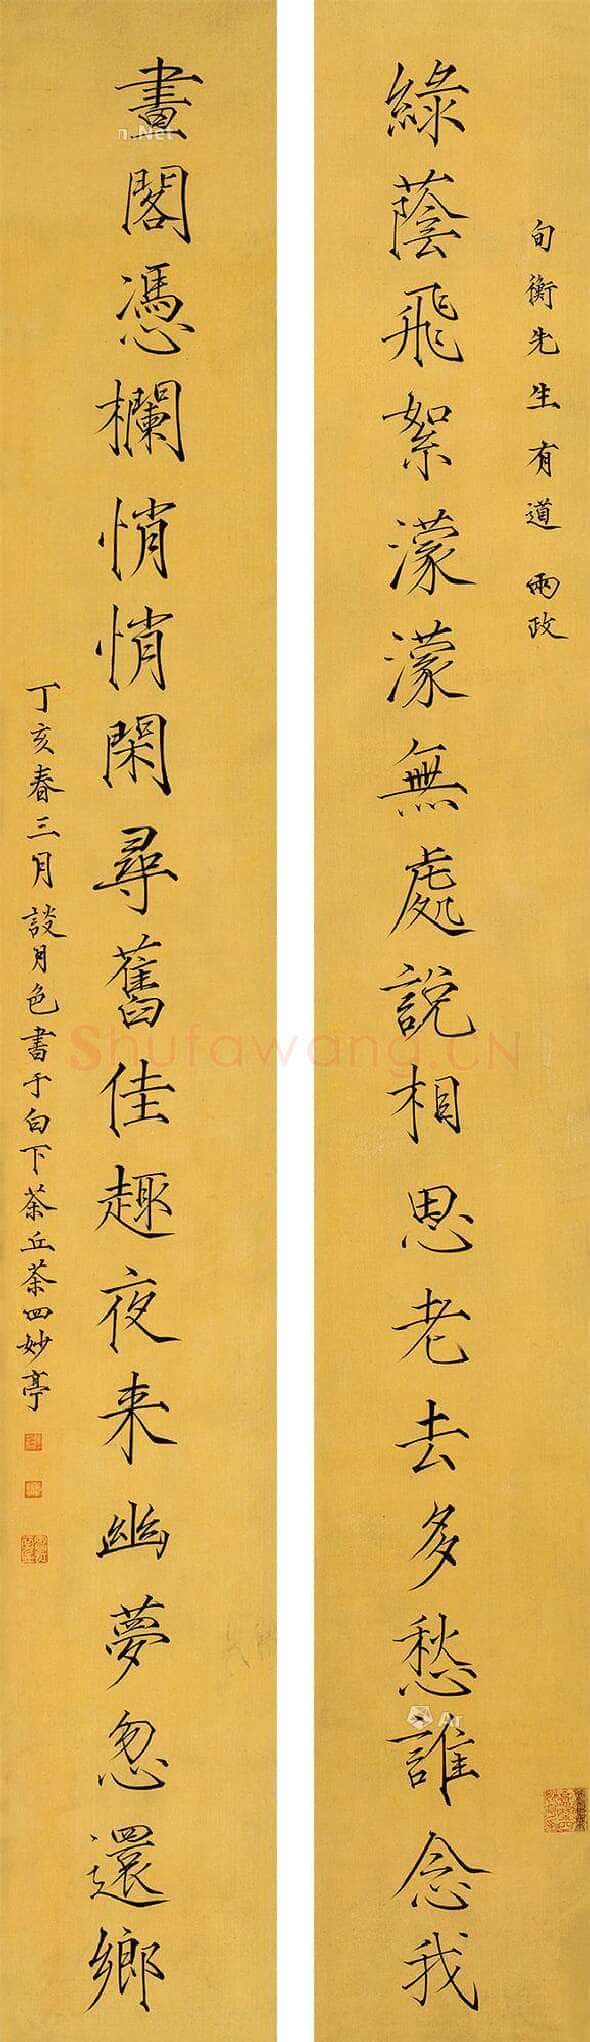 旬衡先生有道兩政
綠蔭飛絮濛濛無處說相思老去多愁誰念我
畫閣馮欄悄悄閑尋舊佳趣夜来幽夢忽還鄉
丁亥春三月談月色書于白下茶丘茶四妙亭
Shufawang.CN
n.Net
Ar